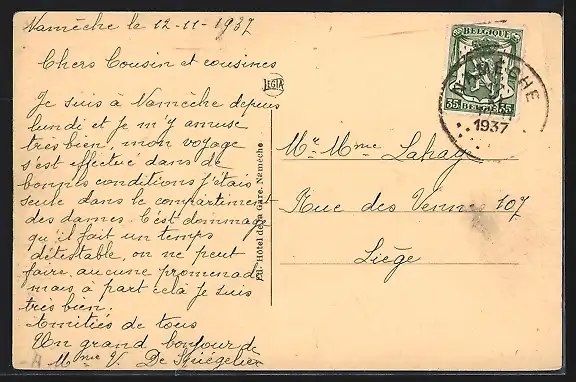 Namêche le 12-11-1937
Chers Cousin et cousines
Je suis à Namêche depuis
lundi et je m'y amuse
tres bien, mon voyage
s'est effectué dans de
bonnes conditions j'étais
seule dans le compartiment
des dames. C'est dommage
qu'il fait un temps
détestable, on ne peut
faire aucune promenade
mais à part celà je suis
très bien.
Amitiés de tous
Un grand bonjour de
Mme V. De
LEGIA
Ed. Hôtel de la Gare. Namêche
BELGIQUE
35 BELGIE 35
1937
Mr Mme Lahay
Rue des Vennes 107
Liège